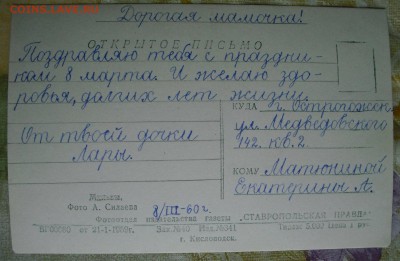 coins.su
Дорогая мамочка!
ОТКРЫТОЕ ПИСЬМО
Поздравляю тебя с праздни-
ком 8 марта. И желаю здо-
ровья, долгих лет жизни.
От твоей дочки
Лары.
8/III-60г.
КУДА г. Острогожск
ул. Медведовского
142. кв. 2.
КОМУ Матюниной
Екатерины А.
Фото А. Силаева
Фотоотдел издательства газеты „СТАВРОПОЛЬСКАЯ ПРАВДА“
г. Кисловодск